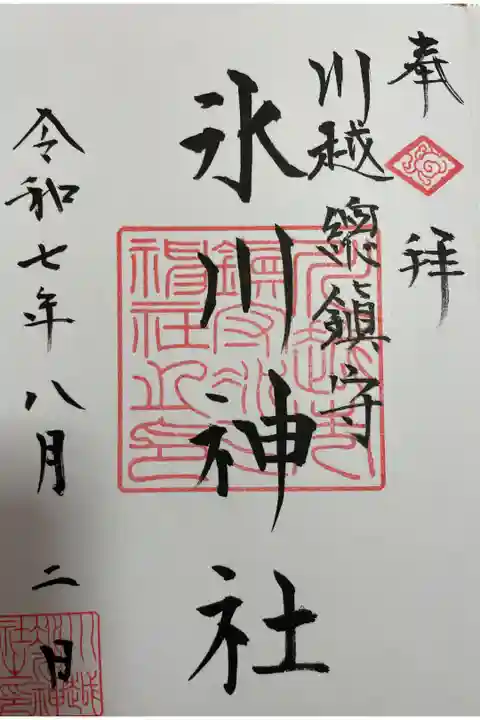 奉拝
川越總鎮守
氷川神社
令和七年八月二日